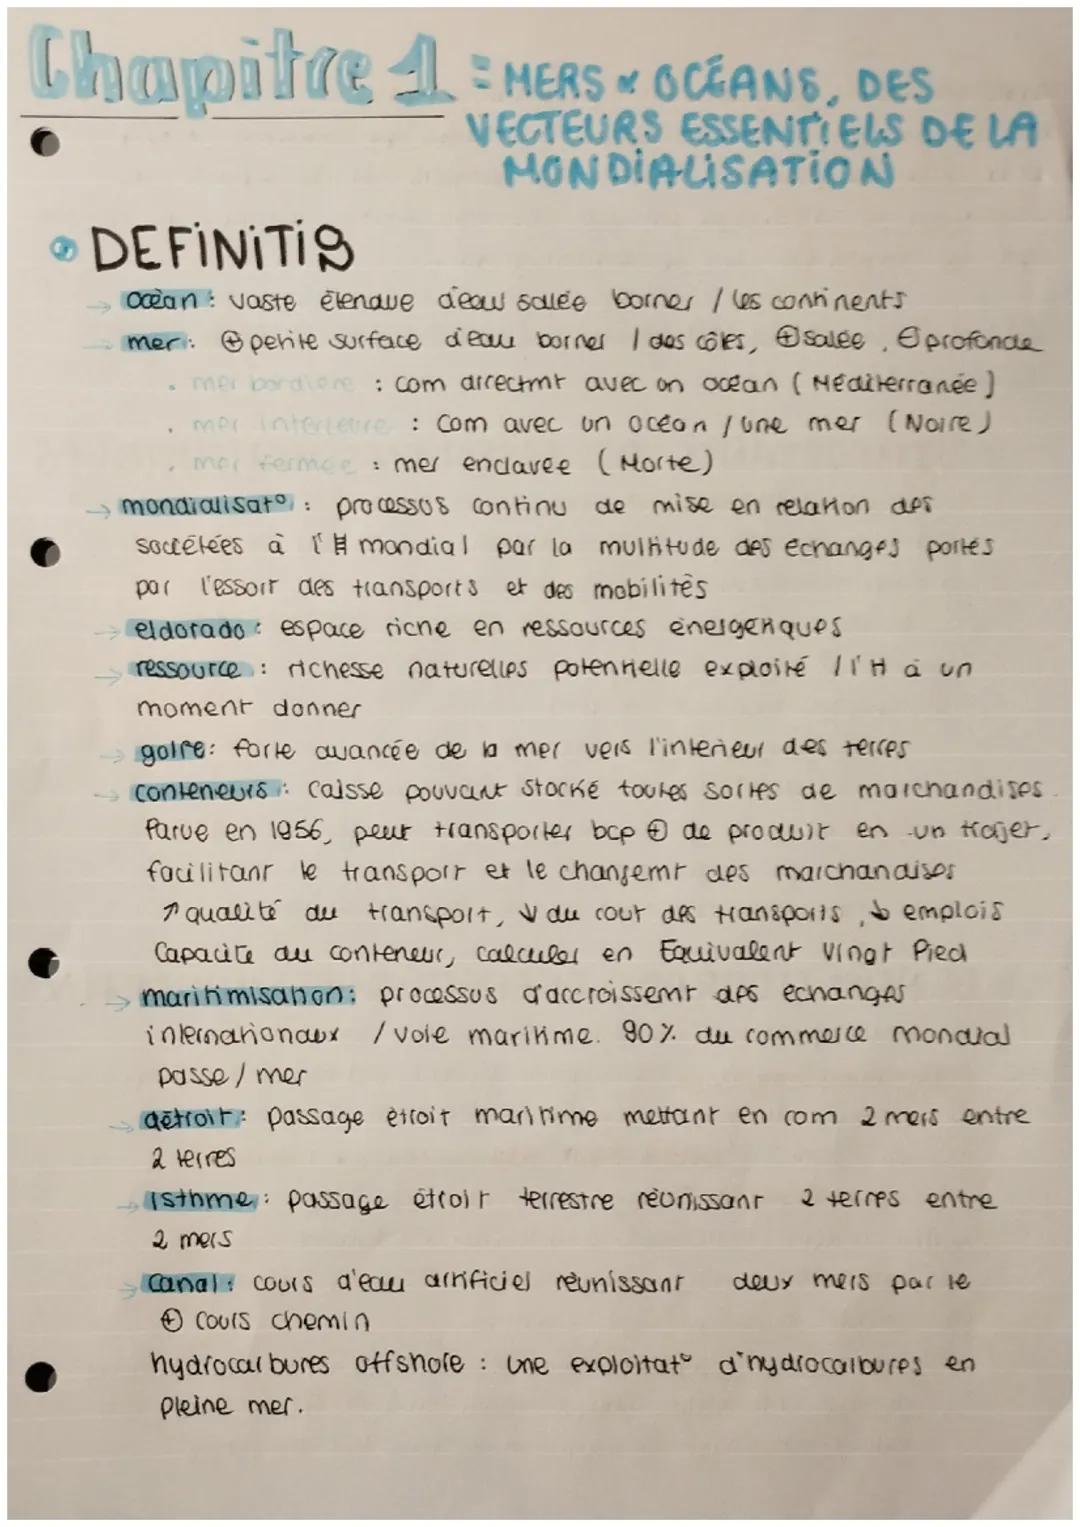 Chapitre 1 = MERS & OCÉANS, DES
VECTEURS ESSENTIELS DE LA
MONDIALISATION
DEFINITIS
→ océan : vaste étendue d'eau salée borner / les continents
→ mer : ⊕ petite surface d'eau borner / des côtes, ⊕ salée, ⊖ profonde
. mer bordière : com directmt avec un océan (Méditerranée)
. mer intérieure : com avec un océan / une mer (Noire)
. mer fermée : mer enclavée (Morte)
→ mondialisat° : processus continu de mise en relation des
sociétées à l'H mondial par la multitude des échanges portés
par l'essort des transports et des mobilités
→ eldorado : espace riche en ressources énergétiques
→ ressource : richesse naturelles potentielle exploité / l'H à un
moment donner
→ golfe : forte avancée de la mer vers l'intérieur des terres
→ conteneurs : caisse pouvant stocké toutes sortes de marchandises.
Parue en 1956, peut transporter bcp ⊕ de produit en un trajet,
facilitant le transport et le changemt des marchandises
↗ qualité du transport, ↓ du cout des transports, ↓ emplois
Capacité du conteneur, calculer en Equivalent Vingt Pied
→ maritimisation : processus d'accroissemt des échanges
internationaux / voie maritime. 90% du commerce mondial
passe / mer
→ détroit : passage étroit maritime mettant en com 2 mers entre
2 terres
→ isthme : passage étroit terrestre réunissant 2 terres entre
2 mers
→ canal : cours d'eau artificiel réunissant deux mers par le
⊕ cours chemin
hydrocarbures offshore : une exploitat° d'hydrocarbures en
pleine mer.